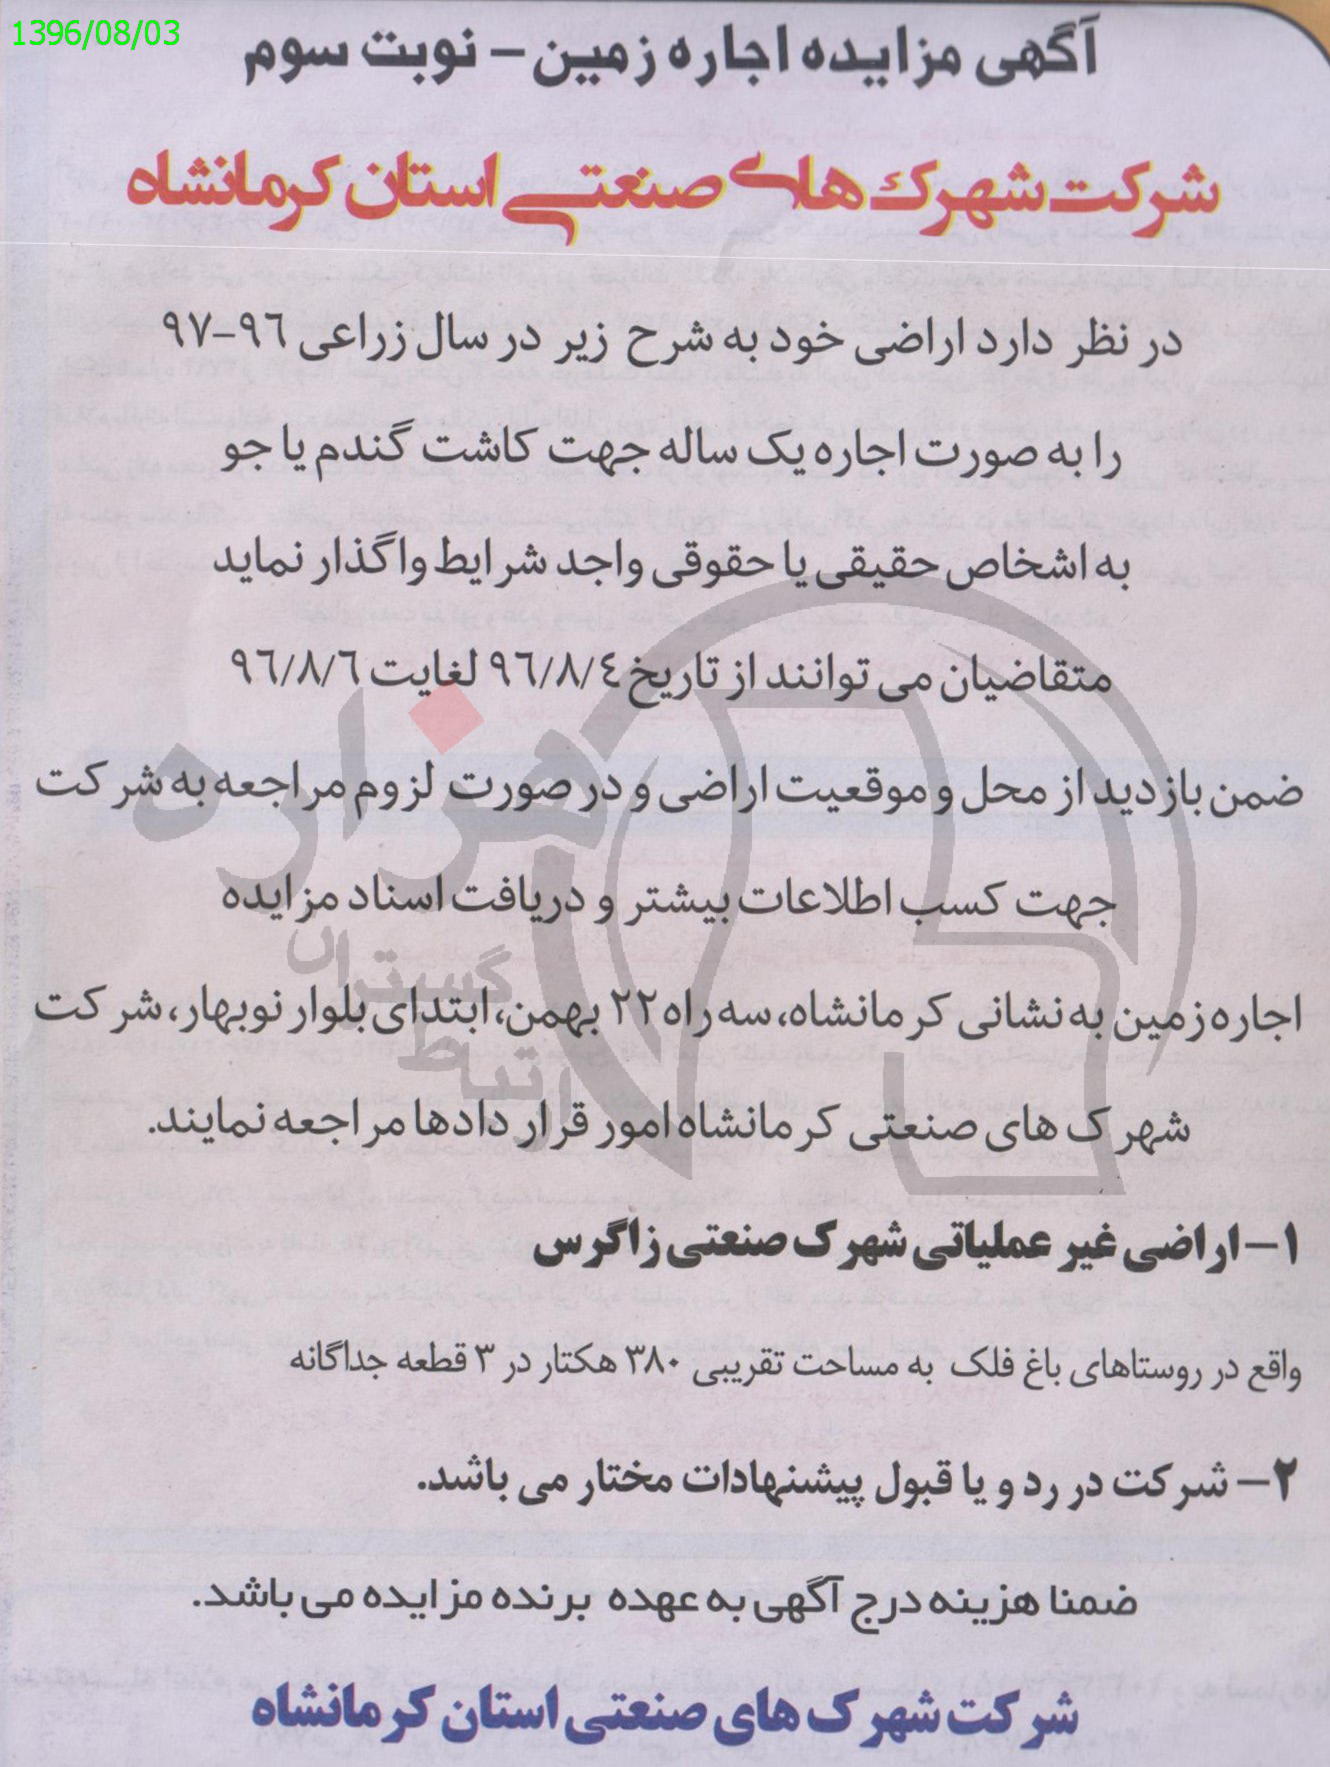 1396/08/03
آگهی مزایده اجاره زمین – نوبت سوم
شرکت شهرک های صنعتی استان کرمانشاه
در نظر دارد اراضی خود به شرح زیر در سال زراعی ۹۶-۹۷
را به صورت اجاره یک ساله جهت کاشت گندم یا جو
به اشخاص حقیقی یا حقوقی واجد شرایط واگذار نماید
متقاضیان می توانند از تاریخ ۹۶/۸/۴ لغایت ۹۶/۸/۶
ضمن بازدید از محل و موقعیت اراضی و در صورت لزوم مراجعه به شرکت
جهت کسب اطلاعات بیشتر و دریافت اسناد مزایده
اجاره زمین به نشانی کرمانشاه، سه راه ۲۲ بهمن، ابتدای بلوار نوبهار، شرکت
شهرک های صنعتی کرمانشاه امور قراردادها مراجعه نمایند.
۱– اراضی غیر عملیاتی شهرک صنعتی زاگرس
واقع در روستاهای باغ فلک به مساحت تقریبی ۳۸۰ هکتار در ۳ قطعه جداگانه
۲– شرکت در رد و یا قبول پیشنهادات مختار می باشد.
ضمنا هزینه درج آگهی به عهده برنده مزایده می باشد.
شرکت شهرک های صنعتی استان کرمانشاه
هزاره
گستران
ارتباط